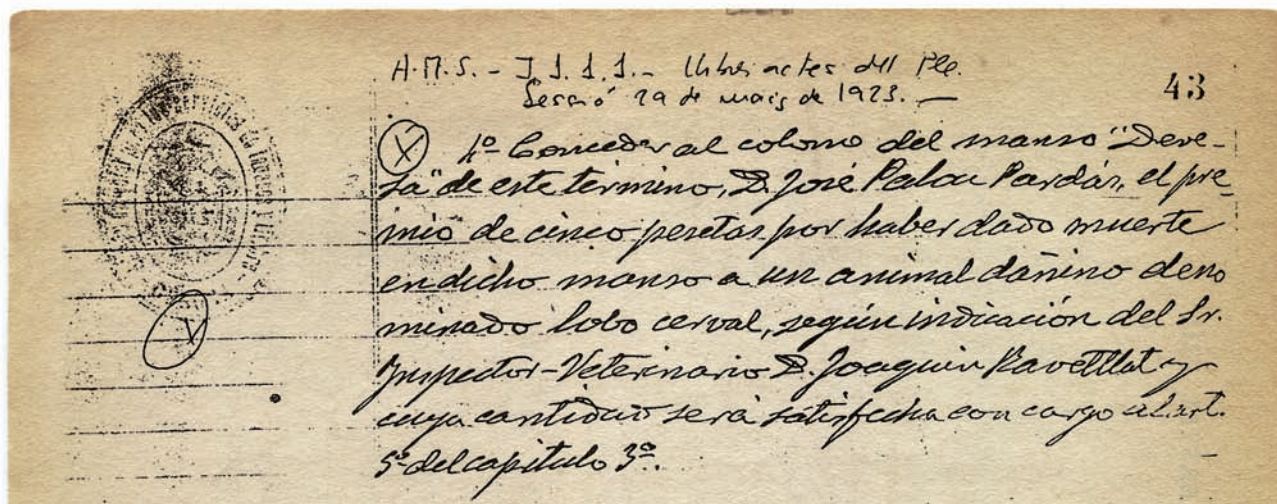 A.M.S. - I.1.1.1. - Llibres actes del Ple.
Sessió 29 de maig de 1923. —
43
4º Conceder al colono del manso "Deve-
sa" de este término, D. José Palou Pardás, el pre-
mio de cinco pesetas por haber dado muerte
en dicho manso a un animal dañino deno
minado lobo cerval, según indicación del Sr.
Inspector-Veterinario D. Joaquin Ravetllat y
cuya cantidad será satisfecha con cargo al art.
5º del capítulo 3º.